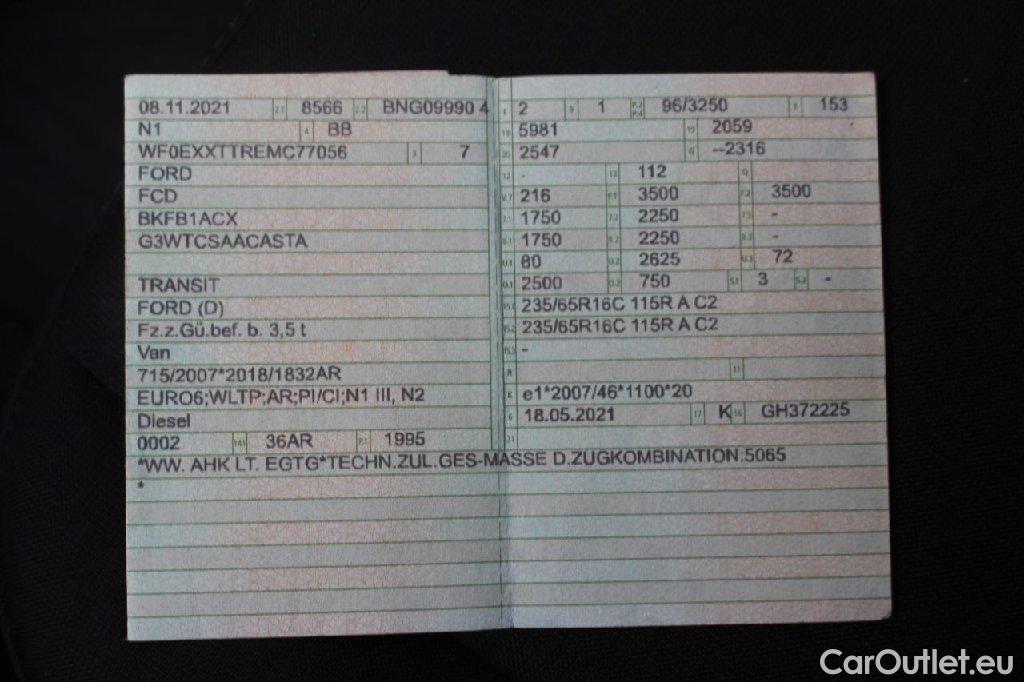 08.11.2021 2.1 8566 2.2 BNG09990 4
N1 4 BB
WF0EXXTTREMC77056 3 7
FORD
FCD
BKFB1ACX
G3WTCSAACASTA
TRANSIT
FORD (D)
Fz.z.Gü.bef. b. 3,5 t
Van
715/2007*2018/1832AR
EURO6;WLTP;AR;PI/CI;N1 III, N2
Diesel
0002 14.1 36AR P.1 1995
*WW. AHK LT. EGTG*TECHN.ZUL.GES-MASSE D.ZUGKOMBINATION:5065
*
L 2 9 1 P.2 P.4 96/3250 T 153
18 5981 19 2059
20 2547 G --2316
12 - 13 112 Q
V.7 216 F.1 3500 F.2 3500
7.1 1750 7.2 2250 7.3 -
8.1 1750 8.2 2250 8.3 -
U.1 80 U.2 2625 U.3 72
O.1 2500 O.2 750 S.1 3 S.2 -
15.1 235/65R16C 115R A C2
15.2 235/65R16C 115R A C2
15.3 -
R 11
K e1*2007/46*1100*20
6 18.05.2021 17 K 16 GH372225
21
CarOutlet.eu